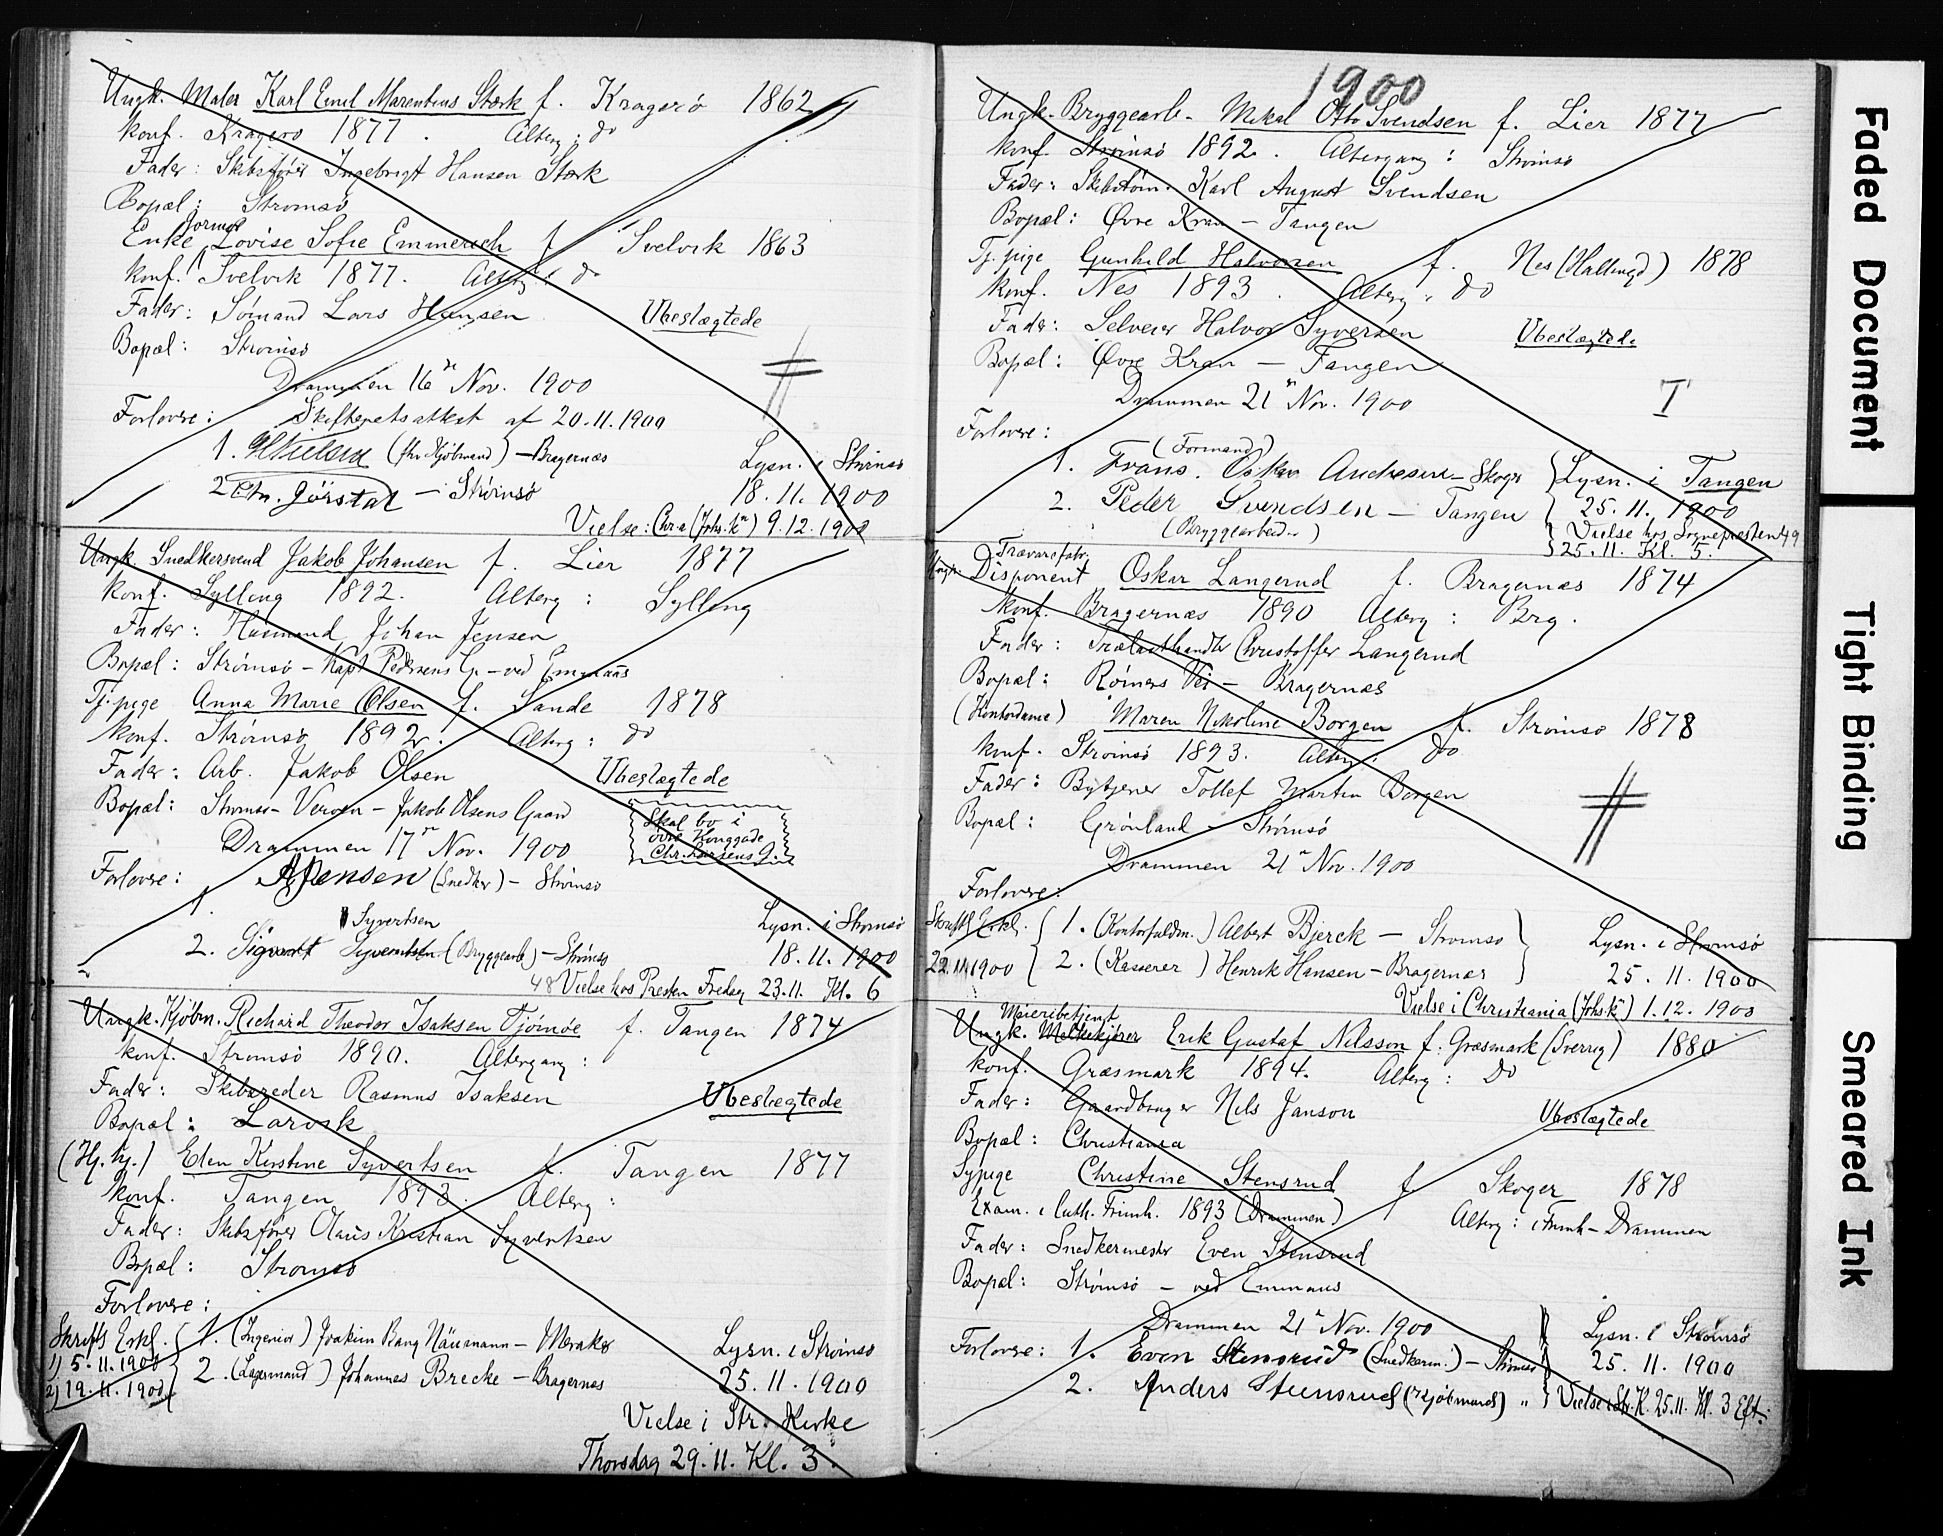 Ungk. Maler Karl Emil Marentius Stærk f. Kragerø 1862
konf. Kragerø 1877. Alterg: do
Fader: Skibsfører Ingebregt Hansen Stærk
Bopæl: Strømsø
Enke Lovise Sofie Emmerich f. Svelvik 1863
konf. Svelvik 1877. Alterg: do
Fader: Sømand Lars Hansen
Ubeslægtede
Bopæl: Strømsø
Drammen 16n Nov. 1900
Forlovere: Skifteretsattest af 20.11.1900
1. (Kjøbmand) - Bragernæs
Lysn. i Strømsø
2. Chr. Jörstad - Strømsø
18.11.1900
Vielse: Chr.a (Johs. K.) 9.12.1900
Ungk. Snedkersvend Jakob Johansen f. Lier 1877
konf. Sylling 1892. Alterg: Sylling
Fader: Husmand Johan Jensen
Bopæl: Strømsø - Kapt Pedersens G. - ved Emmaus
Tj.pige Anna Marie Olsen f. Sande 1878
konf. Strømsø 1892. Alterg: do
Fader: Arb. Jakob Olsen
Ubeslægtede
Bopæl: Strømsø - Jakob Olsens Gaard
Skal bo i
øvre Konggade
Chr. Larsens G.
Drammen 17n Nov. 1900
Forlovere:
1. Jensen (Snedker) - Strømsø
Syvertsen
2. Sigvart Syvertsen (Bryggearb) - Strømsø
Lysn. i Strømsø
18.11.1900
48 Vielse hos Presten Fredag 23.11. Kl. 6
Ungk. Kjøbm. Richard Theodor Isaksen Tjømøe f. Tangen 1874
konf. Strømsø 1890. Altergang:
Fader: Skibsreder Rasmus Isaksen
Ubeslægtede
Bopæl: Larvik
(Hj. hj.) Elen Kirstine Syvertsen f. Tangen 1877
konf. Tangen 1893. Alterg:
Fader: Skibsfører Olaus Kristian Syvertsen
Bopæl: Strømsø
Forlovere:
Skriftl. Erkl. 1. (Ingeniør) Joakim Bang Näumann - Meraker
1) 5.11.1900
2. (Lagermand) Johannes Brecke - Bragernæs
2) 19.11.1900
Lysn. i Strømsø
25.11.1900
Vielse i Str. Kirke
Thorsdag 29.11. Kl. 3.
1900
Ungk. Bryggearb. Mikal Otto Svendsen f. Lier 1877
konf. Strømsø 1892. Altergang: Strømsø
Fader: Skibstøm. Karl August Svendsen
Bopæl: Øvre Kran - Tangen
Tj. pige Gunhild Halvorsen f. Nes (Hallingd) 1878
konf. Nes 1893. Alterg: do
Fader: Selveier Halvor Syversen
Ubeslægtede
Bopæl: Øvre Kran - Tangen
Drammen 21n Nov. 1900
T
Forlovere:
(Formand)
1. Frans Oskar Andresen - Skoger
Lysn. i Tangen
2. Peder Svendsen - Tangen
25.11.1900
(Bryggearbeid.)
Vielse hos Sognepresten 49
25.11. Kl. 5.
Trævarefabr.
Ungk. Disponent Oskar Langerud f. Bragernæs 1874
konf. Bragernæs 1890 Alterg: Brg.
Fader: Trælasthandler Christoffer Langerud
Bopæl: Rømers Vei - Bragernæs
(Kontordame) Maren Nikoline Borgen f. Strømsø 1878
konf. Strømsø 1893. Alterg: do
Fader: Bytjener Tollef Martin Borgen
Bopæl: Grønland - Strømsø
Drammen 21n Nov. 1900
Forlovere:
Skriftl. Erkl. 1. (Kontorfuldm.) Albert Bjerck - Strømsø
22.11.1900 2. (Kasserer) Henrik Hansen - Bragernæs
Lysn. i Strømsø
25.11.1900
Vielse i Christiania (Johs. K.) 1.12.1900
Meieribetjent
Ungk. Melkekjører Erik Gustaf Nilsson f. Græsmark (Sverrig) 1880
konf. Græsmark 1894. Alterg: do
Fader: Gaardbruger Nils Janson
Ubeslægtede
Bopæl: Christiania
Sypige Christine Stensrud f. Skoger 1878
Exam. i luth. Frimh. 1893 (Drammen) Alterg: i Frimh - Drammen
Fader: Snedkermester Even Stensrud
Bopæl: Strømsø - ved Emmaus
Drammen 21n Nov. 1900
Lysn. i Strømsø
Forlovere: 1. Even Stensrud (Snedkerm.) - Strømsø
25.11.1900
2. Anders Steensrud (Kjøbmand) "
Vielse i Str. K. 25.11. Kl. 3 Eft.
Faded Document
Tight Binding
Smeared Ink